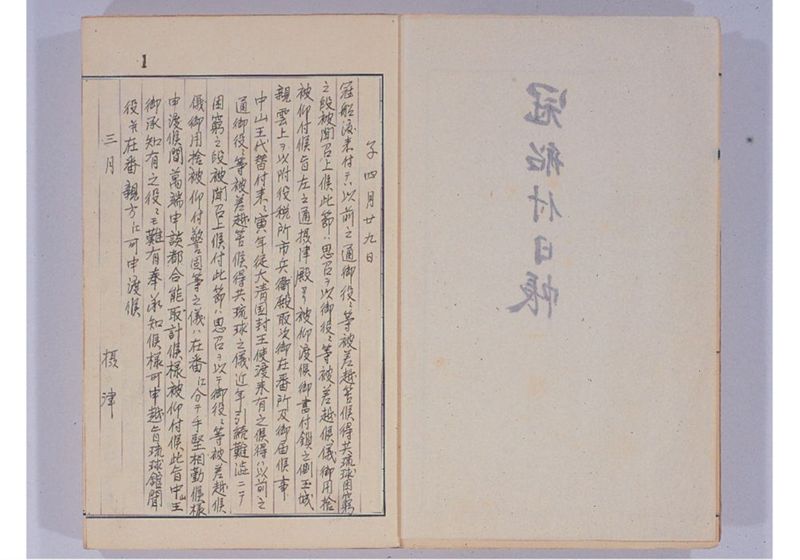 冠船付日帳
1
子四月廿九日
冠船渡来付テハ以前之通御役々等被差越筈候得共琉球困窮
之段被聞召上候此節ハ思召ヲ以御役々等被差越候儀御用捨
被仰付候旨左之通摂津殿ヨリ被仰渡候御書付鎖之側玉城
親雲上ヲ以附役税所市兵衛殿取次御在番所及御届候事
中山王代替付来ル寅年従大清国封王使渡来有之候得ハ以前之
通御役々等被差越筈候得共琉球之儀近年引続難渋ニテ
困窮之段被聞召上候付此節ハ思召ヲ以テ御役々等被差越候
儀御用捨被仰付警固等之儀ハ在番ニ分テ手堅相勤候様
申渡候間萬端申談都合能取計候様被仰付候此旨中山王
御承知有之役々モ難有奉承知候様可申越旨琉球館聞
役并在番親方ニ可申渡候
三月 摂津